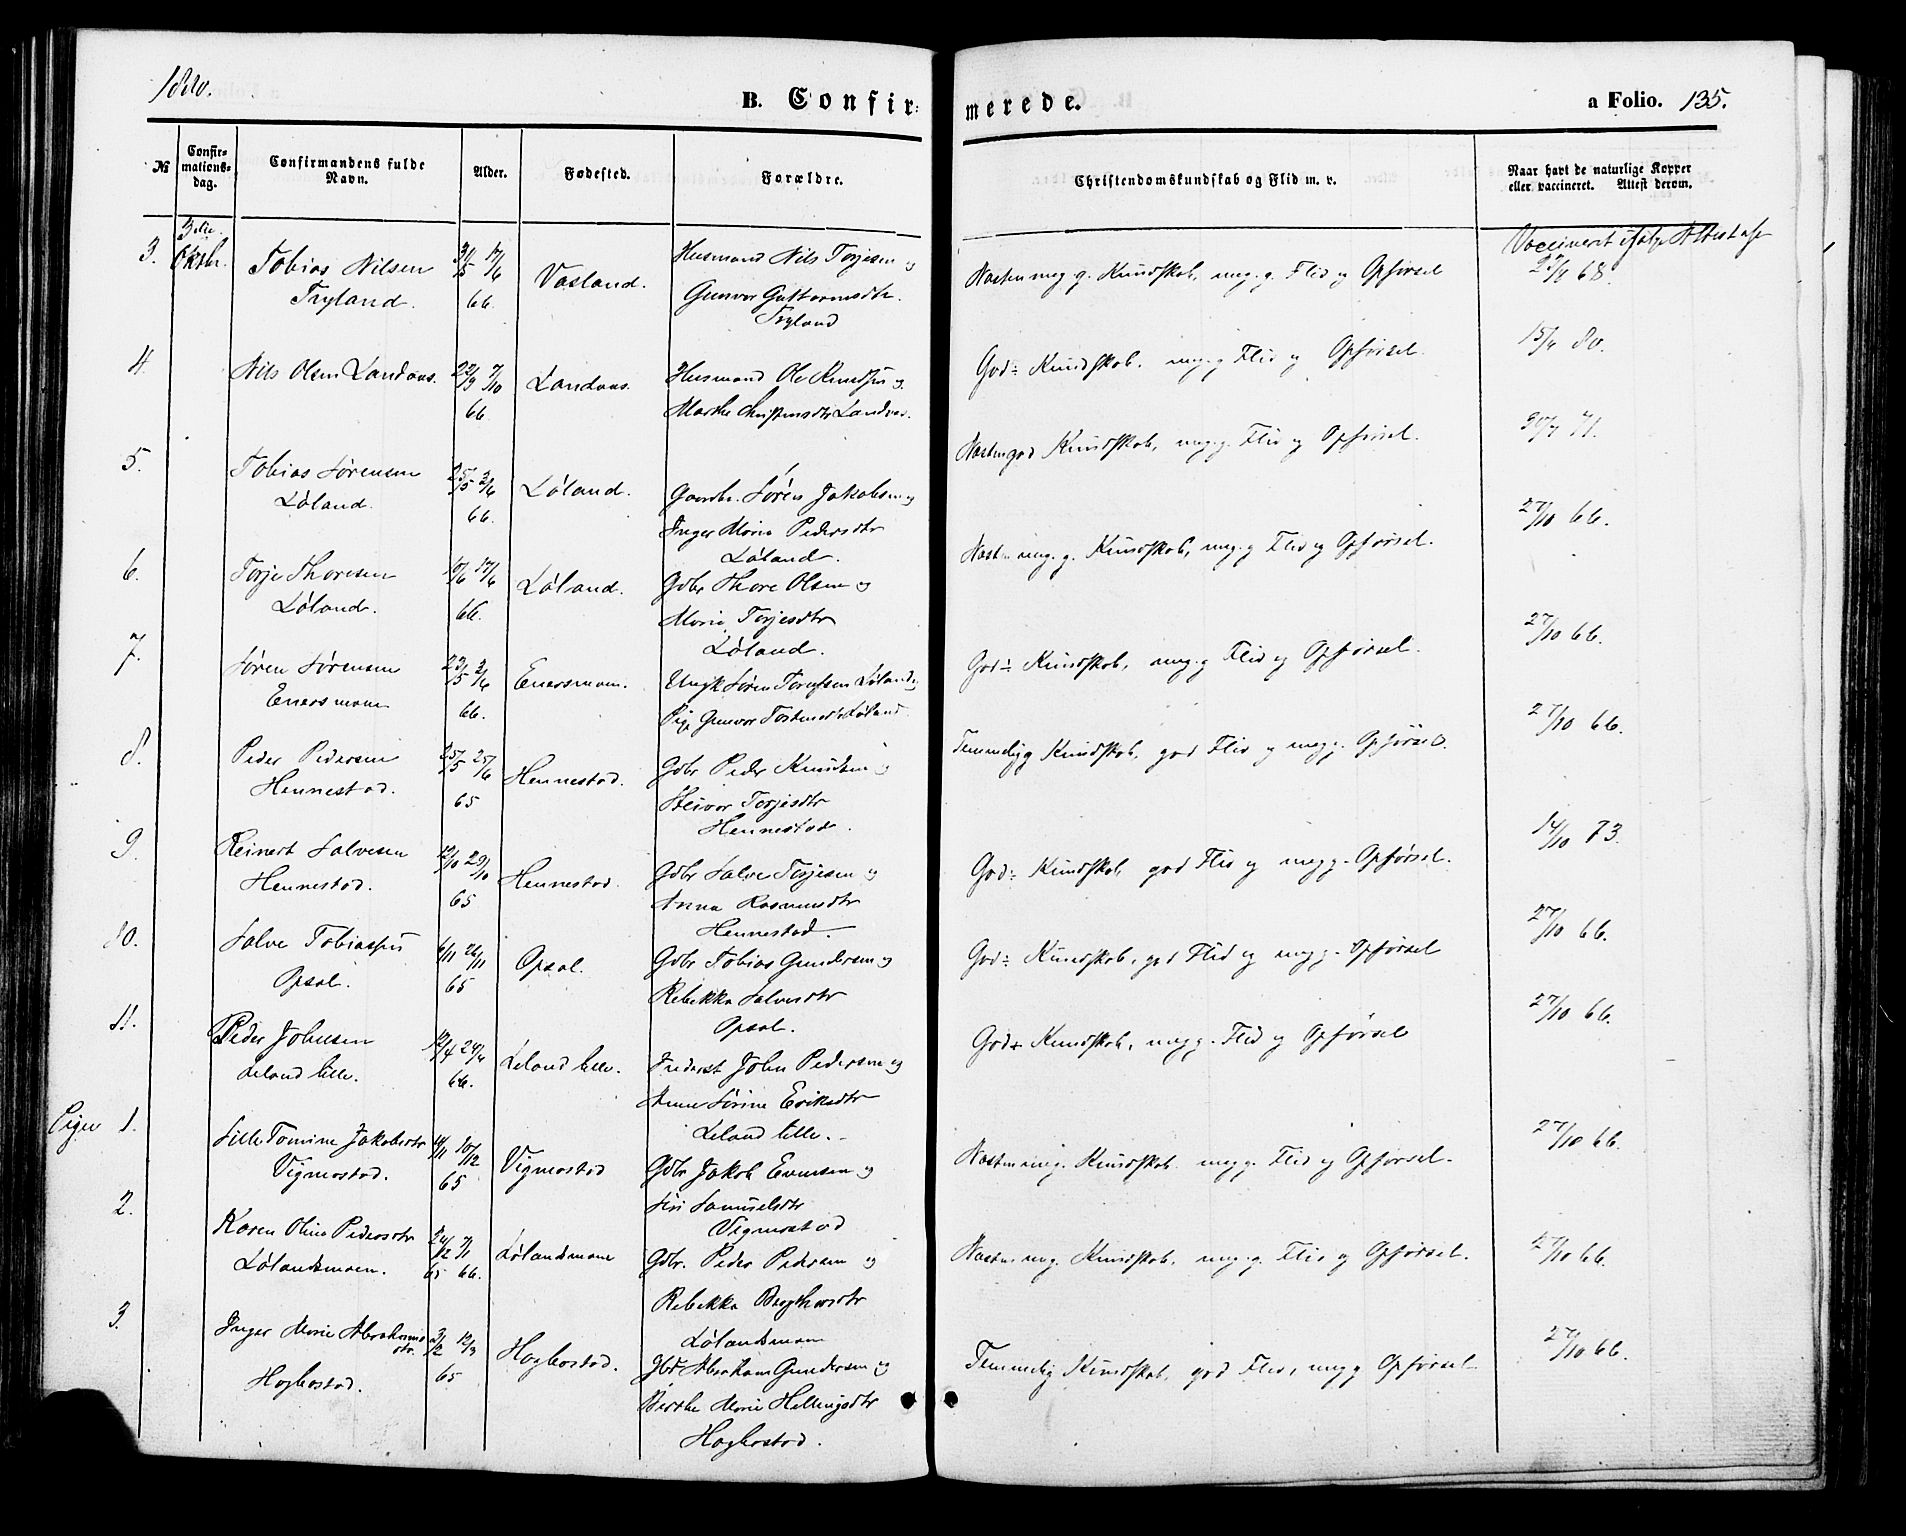 1880.
B. Confir-
merede.
a Folio. 135.
№
Confir-
mations-
dag.
Confirmandens fulde
Navn.
Alder.
Fødested.
Forældre.
Christendomskundskab og Flid m. v.
Naar havt de naturlige Kopper
eller vaccineret. Attest derom.
3die
Oktbr.
3.
Tobias Nilsen
Tryland.
31/5 17/6
66.
Vasland.
Husmand Nils Torjesen og
Gunvor Guttormsdtr.
Tryland
Næsten meg. g. Kundskab, meg. g. Flid og Opførsel
Vaccineret ifølge Attest af
68.
4.
Nils Olsen Landaas.
22/9 7/10
66.
Landaas.
Husmand Ole Knudsen og
Marthe Christensdtr Landaas.
God÷ Kundskab, meg. g Flid og Opførsel.
80.
5.
Tobias Sørensen
Løland.
25/5 3/6
66.
Løland.
Gaardbr. Søren Jakobsen og
Inger Marie Pedersdtr
Løland.
Næsten god Kundskab, meg. g. Flid og Opførsel.
71.
6.
Torje Thoresen
Løland.
10/6 17/6
66.
Løland.
Gdbr Thore Olsen og
Marie Torjesdtr
Løland.
Næsten meg. g. Kundskab, meg. g Flid og Opførsel.
27/10 66.
7.
Søren Sørensen
Enersmoen
23/5 3/6
66.
Enersmoen.
Ungk Søren Løland og
Pige Gunvor Løland
God÷ Kundskab, meg. g Flid og Opførsel.
27/10 66.
8.
Peder Pedersen
Hennestad.
25/5 25/6
65
Hennestad.
Gdbr Peder Knudsen og
Torjesdtr
Hennestad.
Temmelig g Kundskab, god Flid og meg g. Opførsel.
27/10 66.
9.
Reinert Salvesen
Hennestad.
12/10 29/10
65
Hennestad.
Gdbr Salve Torjesen og
Anna Rasmusdtr
Hennestad.
God÷ Kundskab, god Flid og meg g. Opførsel.
14/10 73.
10.
Salve Tobiassen
Opsal.
6/11 26/11
65
Opsal.
Gdbr Tobias Gundersen og
Rebekka Salvesdtr
Opsal.
God÷ Kundskab, god Flid og meg g. Opførsel
27/10 66.
11.
Peder Johnsen
Leland lille.
12/4 29/4
66.
Leland lille.
Inderst John Pedersen og
Anne Sørine Eriksdtr
Leland lille.
God+ Kundskab, meg g. Flid og Opførsel
27/10 66.
Piger 1.
Sille Tomine Jakobsdtr
Vigmostad.
10/12
65
Vigmostad
Gdbr Jakob Evensen og
Siri Samuelsdtr
Vigmostad
Næsten meg. Kundskab. meg g. Flid og Opførsel.
27/10 66.
2.
Karen Oline Pedersdtr
Lølandsmoen.
24/12 7/1
65 66.
Lølandsmoen
Gdbr. Peder Pedersen og
Rebekka Bergthorsdtr
Lølandsmoen
Næsten meg. Kundskab, meg. g. Flid og Opførsel.
27/10 66.
3.
Inger Marie Abrahams
dtr.
Hogbostad.
65
Hogbostad.
Gbr Abraham Gundersen og
Birthe Marie Hellingsdtr
Hogbostad.
Temmelig Kundskab, god Flid, meg g Opførsel
27/10 66.